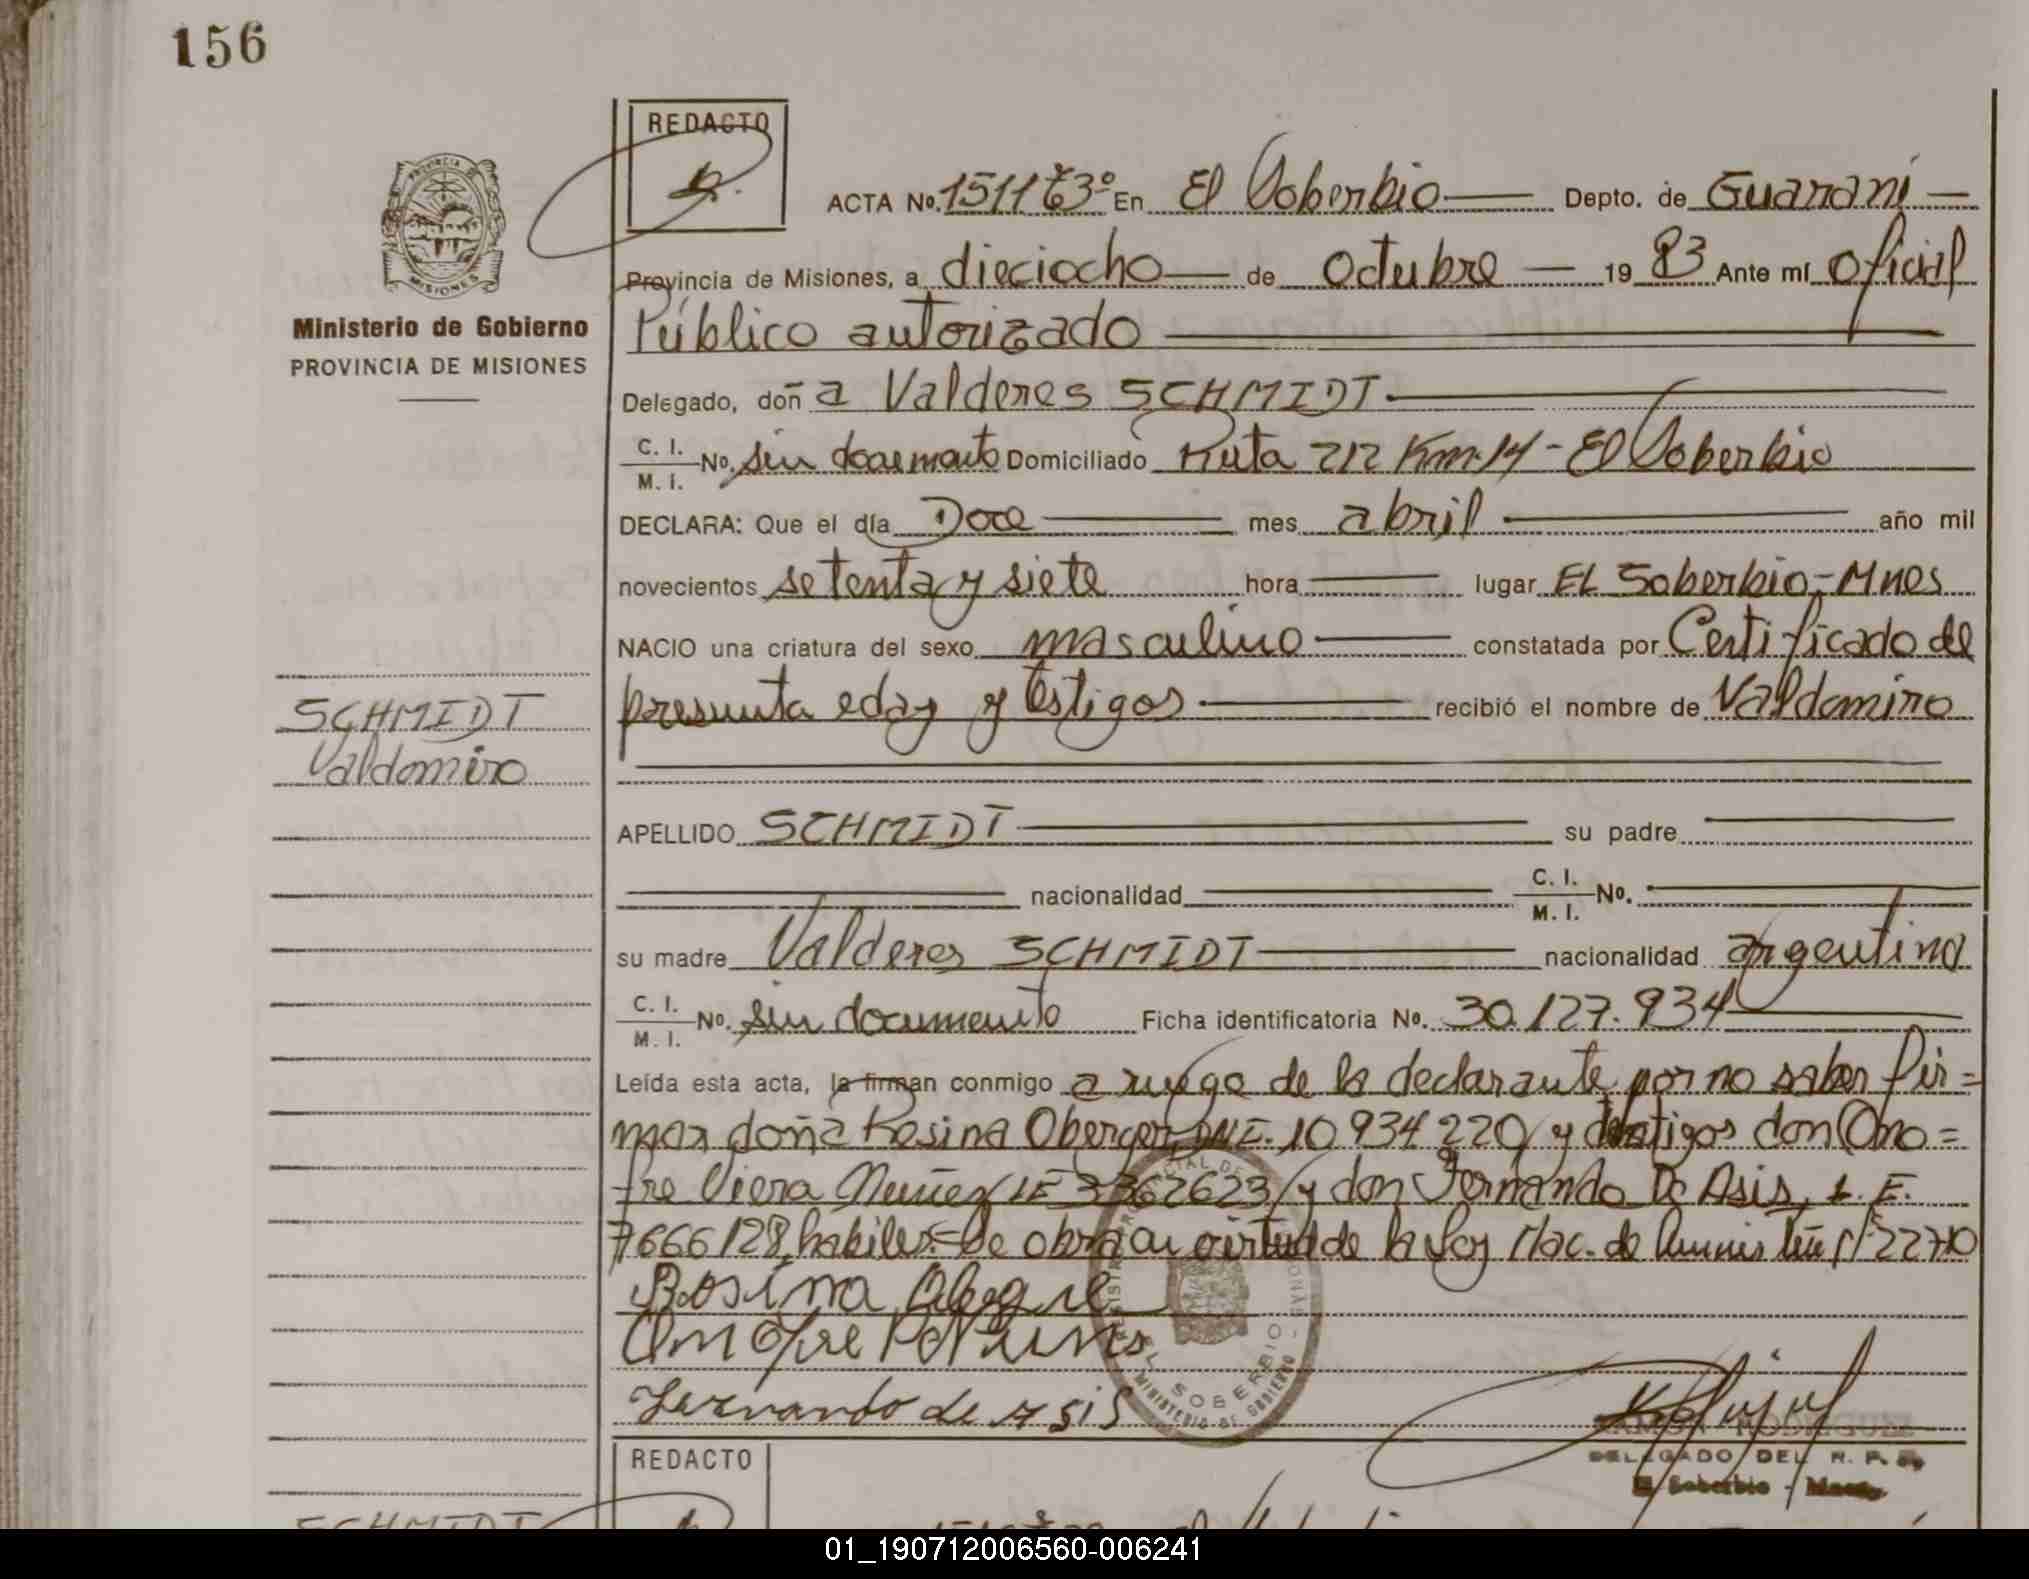 156
REDACTO
ACTA No. 1511 En El Soberbio Depto. de Guaraní
Provincia de Misiones, a dieciocho de Octubre 19 83 Ante mí Oficial
Público autorizado
Ministerio de Gobierno
PROVINCIA DE MISIONES
Delegado, doñ a Valderes SCHMIDT
C. I.
M. I. No. sin documento Domiciliado Ruta 212 Km. 14 - El Soberbio
DECLARA: Que el día Doce mes abril año mil
novecientos setenta y siete hora lugar EL Soberbio - Mnes
NACIO una criatura del sexo masculino constatada por Certificado de
presunta edad y testigos recibió el nombre de Valdomiro
SCHMIDT
Valdomiro
APELLIDO SCHMIDT su padre
nacionalidad C. I.
M. I. No.
su madre Valderes SCHMIDT nacionalidad argentina
C. I.
M. I. No. sin documento Ficha identificatoria No. 30.127.934
Leída esta acta, la firman conmigo a ruego de la declarante por no saber fir=
mar doña Rosina Oberger DNI. 10934220 y testigos don Ono=
fre Viera Nuñez LE 3362623 y don Fernando De Asis, L. E.
7666128, habiles. Se obra en virtud de la Ley Nac. de Amnistía Nº 22710
Rosina
Onofre
Fernando de Asis
EL SOBERBIO
MINISTERIO DE GOBIERNO
DELEGADO DEL R. P.
El Soberbio - Mnes.
REDACTO
SCHMIDT
01_190712006560-006241